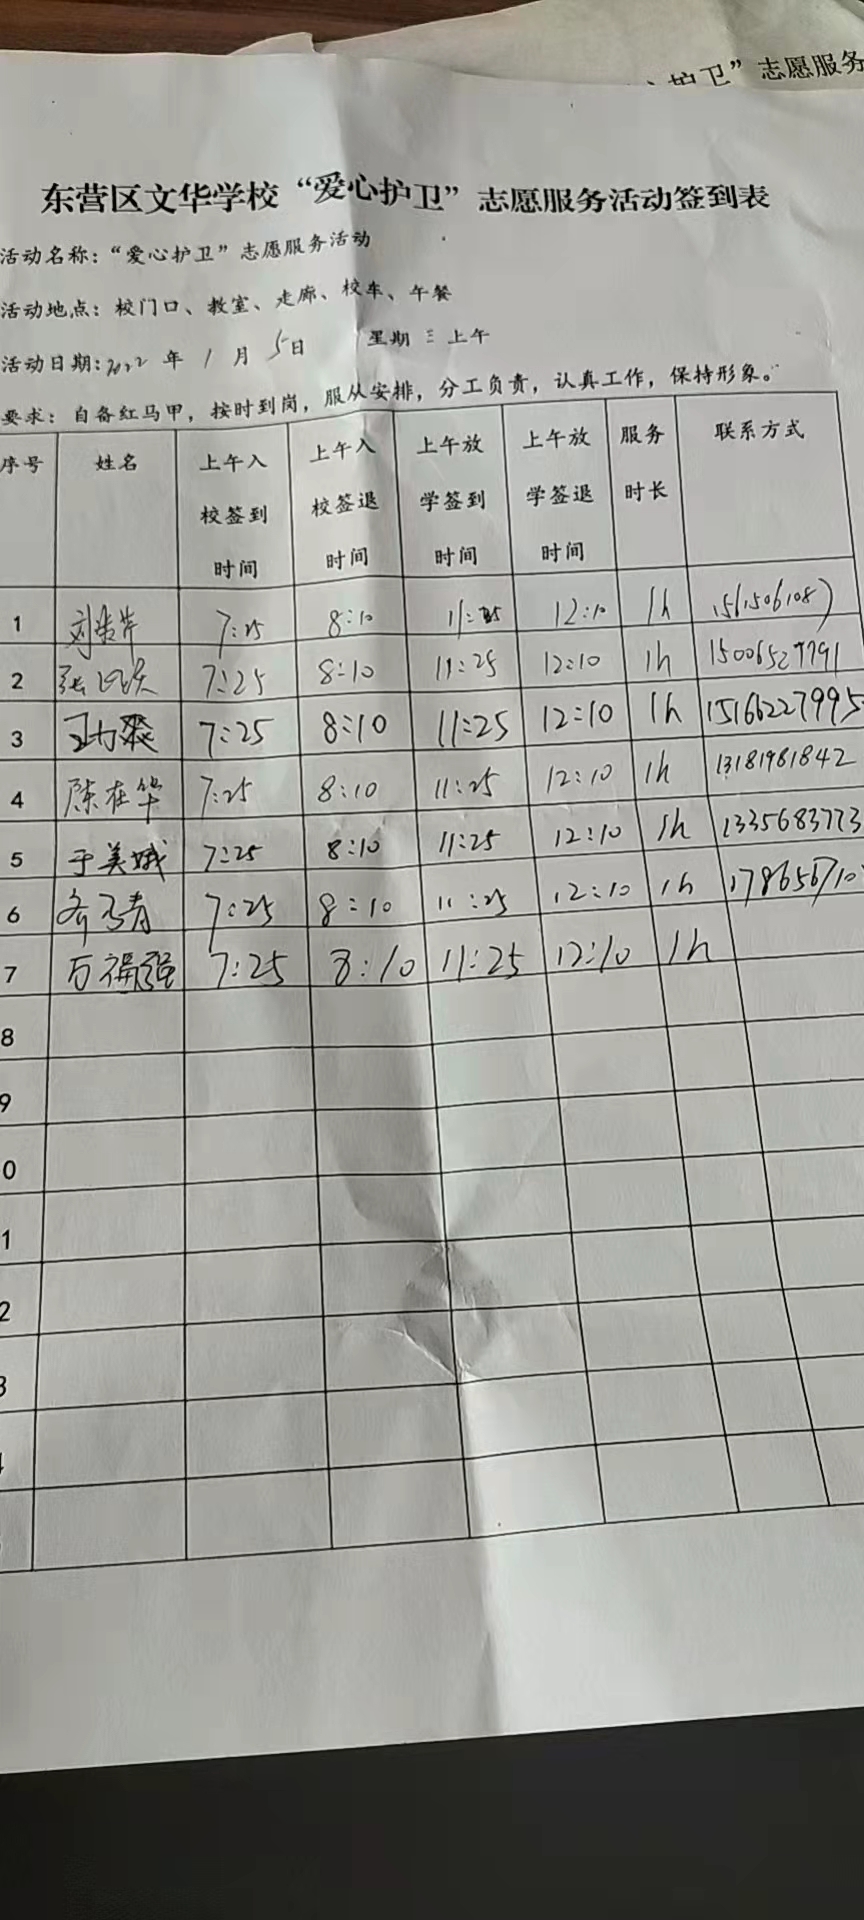 心护卫”志愿服务
东营区文华学校“爱心护卫”志愿服务活动签到表
活动名称：“爱心护卫”志愿服务活动
活动地点：校门口、教室、走廊、校车、午餐
活动日期：2022 年 1 月 5日 星期 三 上午
要求：自备红马甲，按时到岗，服从安排，分工负责，认真工作，保持形象。
序号 姓名 上午入校签到时间 上午入校签退时间 上午放学签到时间 上午放学签退时间 服务时长 联系方式
1 7:25 8:10 11:25 12:10 1h
2 7:25 8:10 11:25 12:10 1h 15006527791
3 7:25 8:10 11:25 12:10 1h 15166227995
4 陈在华 7:25 8:10 11:25 12:10 1h 13181981842
5 于美娥 7:25 8:10 11:25 12:10 1h 1335683773
6 7:25 8:10 11:25 12:10 1h
7 万福强 7:25 8:10 11:25 12:10 1h
8
9
0
1
2
3